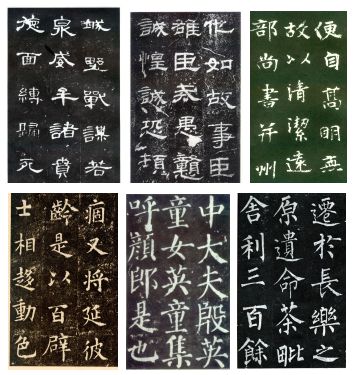 城野戰謀若
泉威牟諸賁
德面縛歸死
他如故事臣
雄臣戒愚戇
誠惶誠恐頓
便自高明無
故以清潔遠
部尚書并州
痼又将延彼
齡是以百辟
士相趍動色
中大夫殷英
童女英童集
呼顏郎是也
遷於長樂之
原遺命荼毗
舍利三百餘